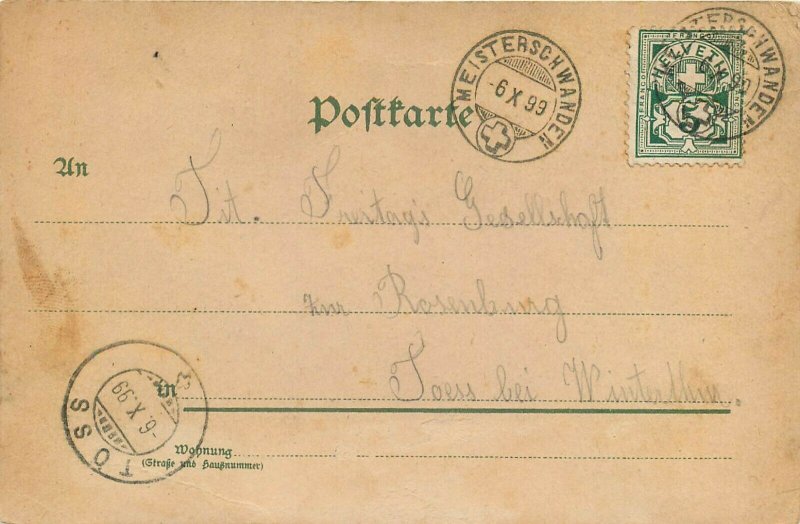 Postkarte
MEISTERSCHWANDEN
-6 X 99
MEISTERSCHWANDEN
FRANCO
HELVETIA
FRANCO
5
An
Tit. Freitags Gesellschaft
zur Rosenburg
in Toess bei Winterthur.
TÖSS
-6.X.99
Wohnung
(Straße und Hausnummer)